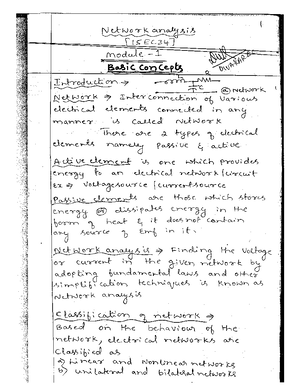 Network analysis
[15EC34]
module - I
Basic Concepts
Introduction →
R
C
network
Network → Interconnection of various
electrical elements connected in any
manner is called Network
There are 2 types of electrical
elements namely passive & active
Active element is one which provides
energy to an electrical network/circuit
Ex → Voltage source / current source
Passive elements are those which stores
energy or dissipates energy in the
form of heat & it does not contain
any source of Emf in it.
Network analysis → Finding the voltage
or current in the given network by
adopting fundamental laws and other
simplification techniques is known as
Network analysis
Classification of network →
Based on the behaviour of the
network, electrical networks are
classified as
a) Linear and Nonlinear networks
b) unilateral and bilateral networks